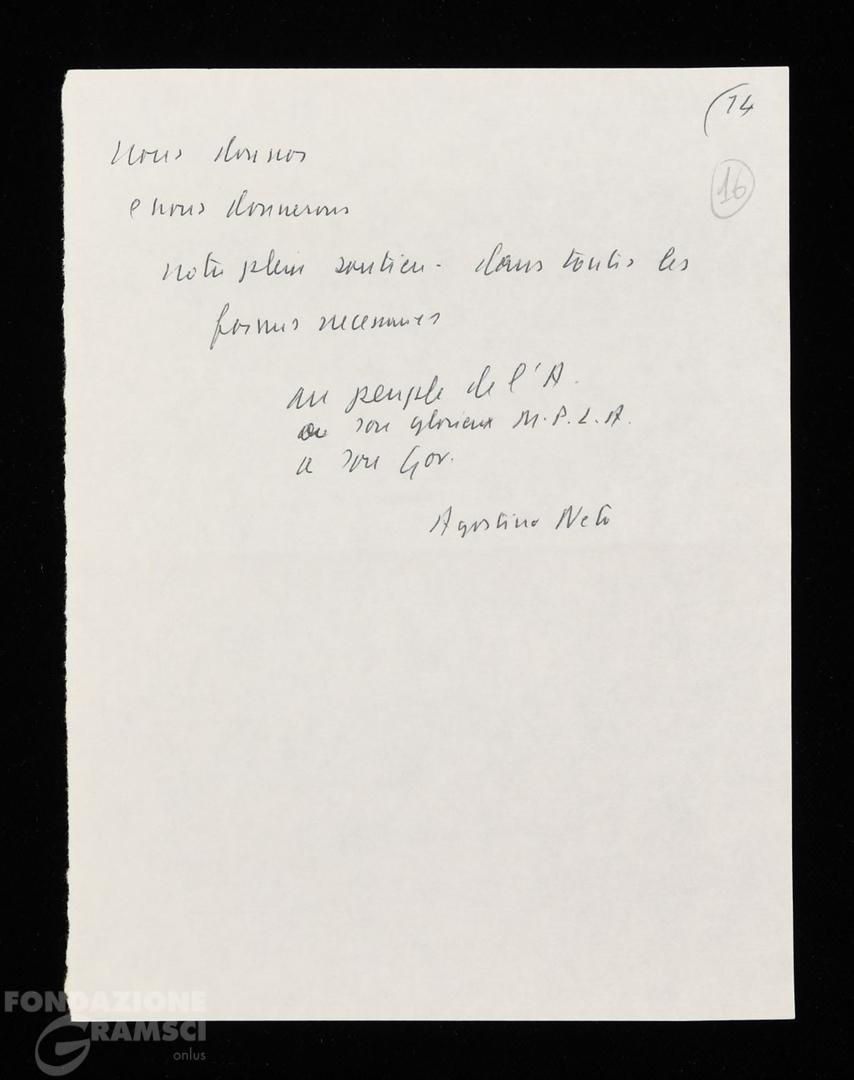 (14
16
nous donnos
e nous donnerons
notre plein soutien - dans toutes les
formes necessaires
au peuple de l'A.
au son glorieux M.P.L.A.
a son Gov.
Agostino Neto
FONDAZIONE
GRAMSCI
onlus